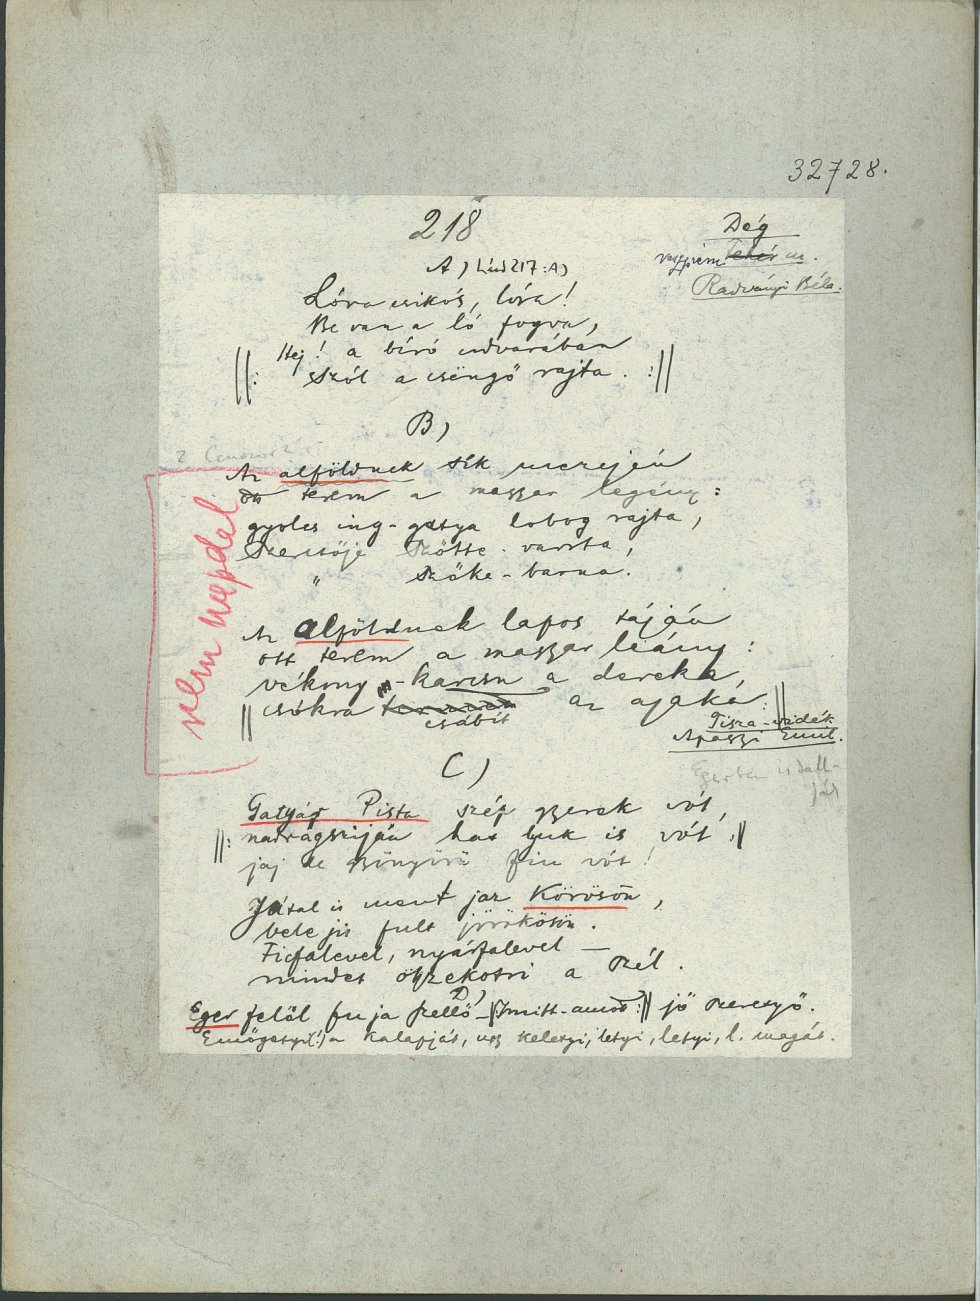 32728.
218
Dég
veszprém Fehér m.
Radványi Béla.
A) Lásd 217:A)
Lóra csikós, lóra!
Be van a ló fogva,
Hej! a bíró udvarában
szól a csëngő rajta. :||
B)
Az alföldnek sík mezején
ott terem a magyar legény:
gyolcs ing-gatya lobog rajta,
Szeretője szőtte-varrta,
" szőke-barna.
nem népdal
Az alföldnek lapos táján
ott terem a magyar leány:
vékony-karcsu a dereka,
||: csókra termett az ajaka :||
csábít
Tisza-vidék
Apaszi Emil.
Egerben is dall-
ják
C)
Gatyás Pista szép gyerek vót,
||: nadrágszíján hat lyuk is vót, :||
jaj de gyönyörű fiu vót!
Játal is ment jaz Körösön,
bele jis fult jörökösön.
Ficfalevel, nyárfalevel —
mindet összekötri a szél.
D)
Eger felöl fuja szellő -||: Imitt-amott :|| jő szeretyő.
a kalapját, ugy keletyi, letyi, letyi, l. magát.